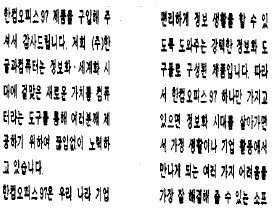 한컴오피스97 제품을 구입해 주
셔서 감사드립니다. 저희 (주)한
글과컴퓨터는 정보화·세계화 시
대에 걸맞은 새로운 가치를 컴퓨
터라는 도구를 통해 여러분께 제
공하기 위하여 끊임없이 노력하
고 있습니다.
한컴오피스97은 우리 나라 기업
편리하게 정보 생활을 할 수 있
도록 도와주는 강력한 정보화 도
구들로 구성된 제품입니다. 따라
서 한컴오피스97 하나만 가지고
있으면 정보화 시대를 살아가면
서 가정 생활이나 기업 활동에서
만나게 되는 여러 가지 어려움을
가장 잘 해결해 줄 수 있는 소프